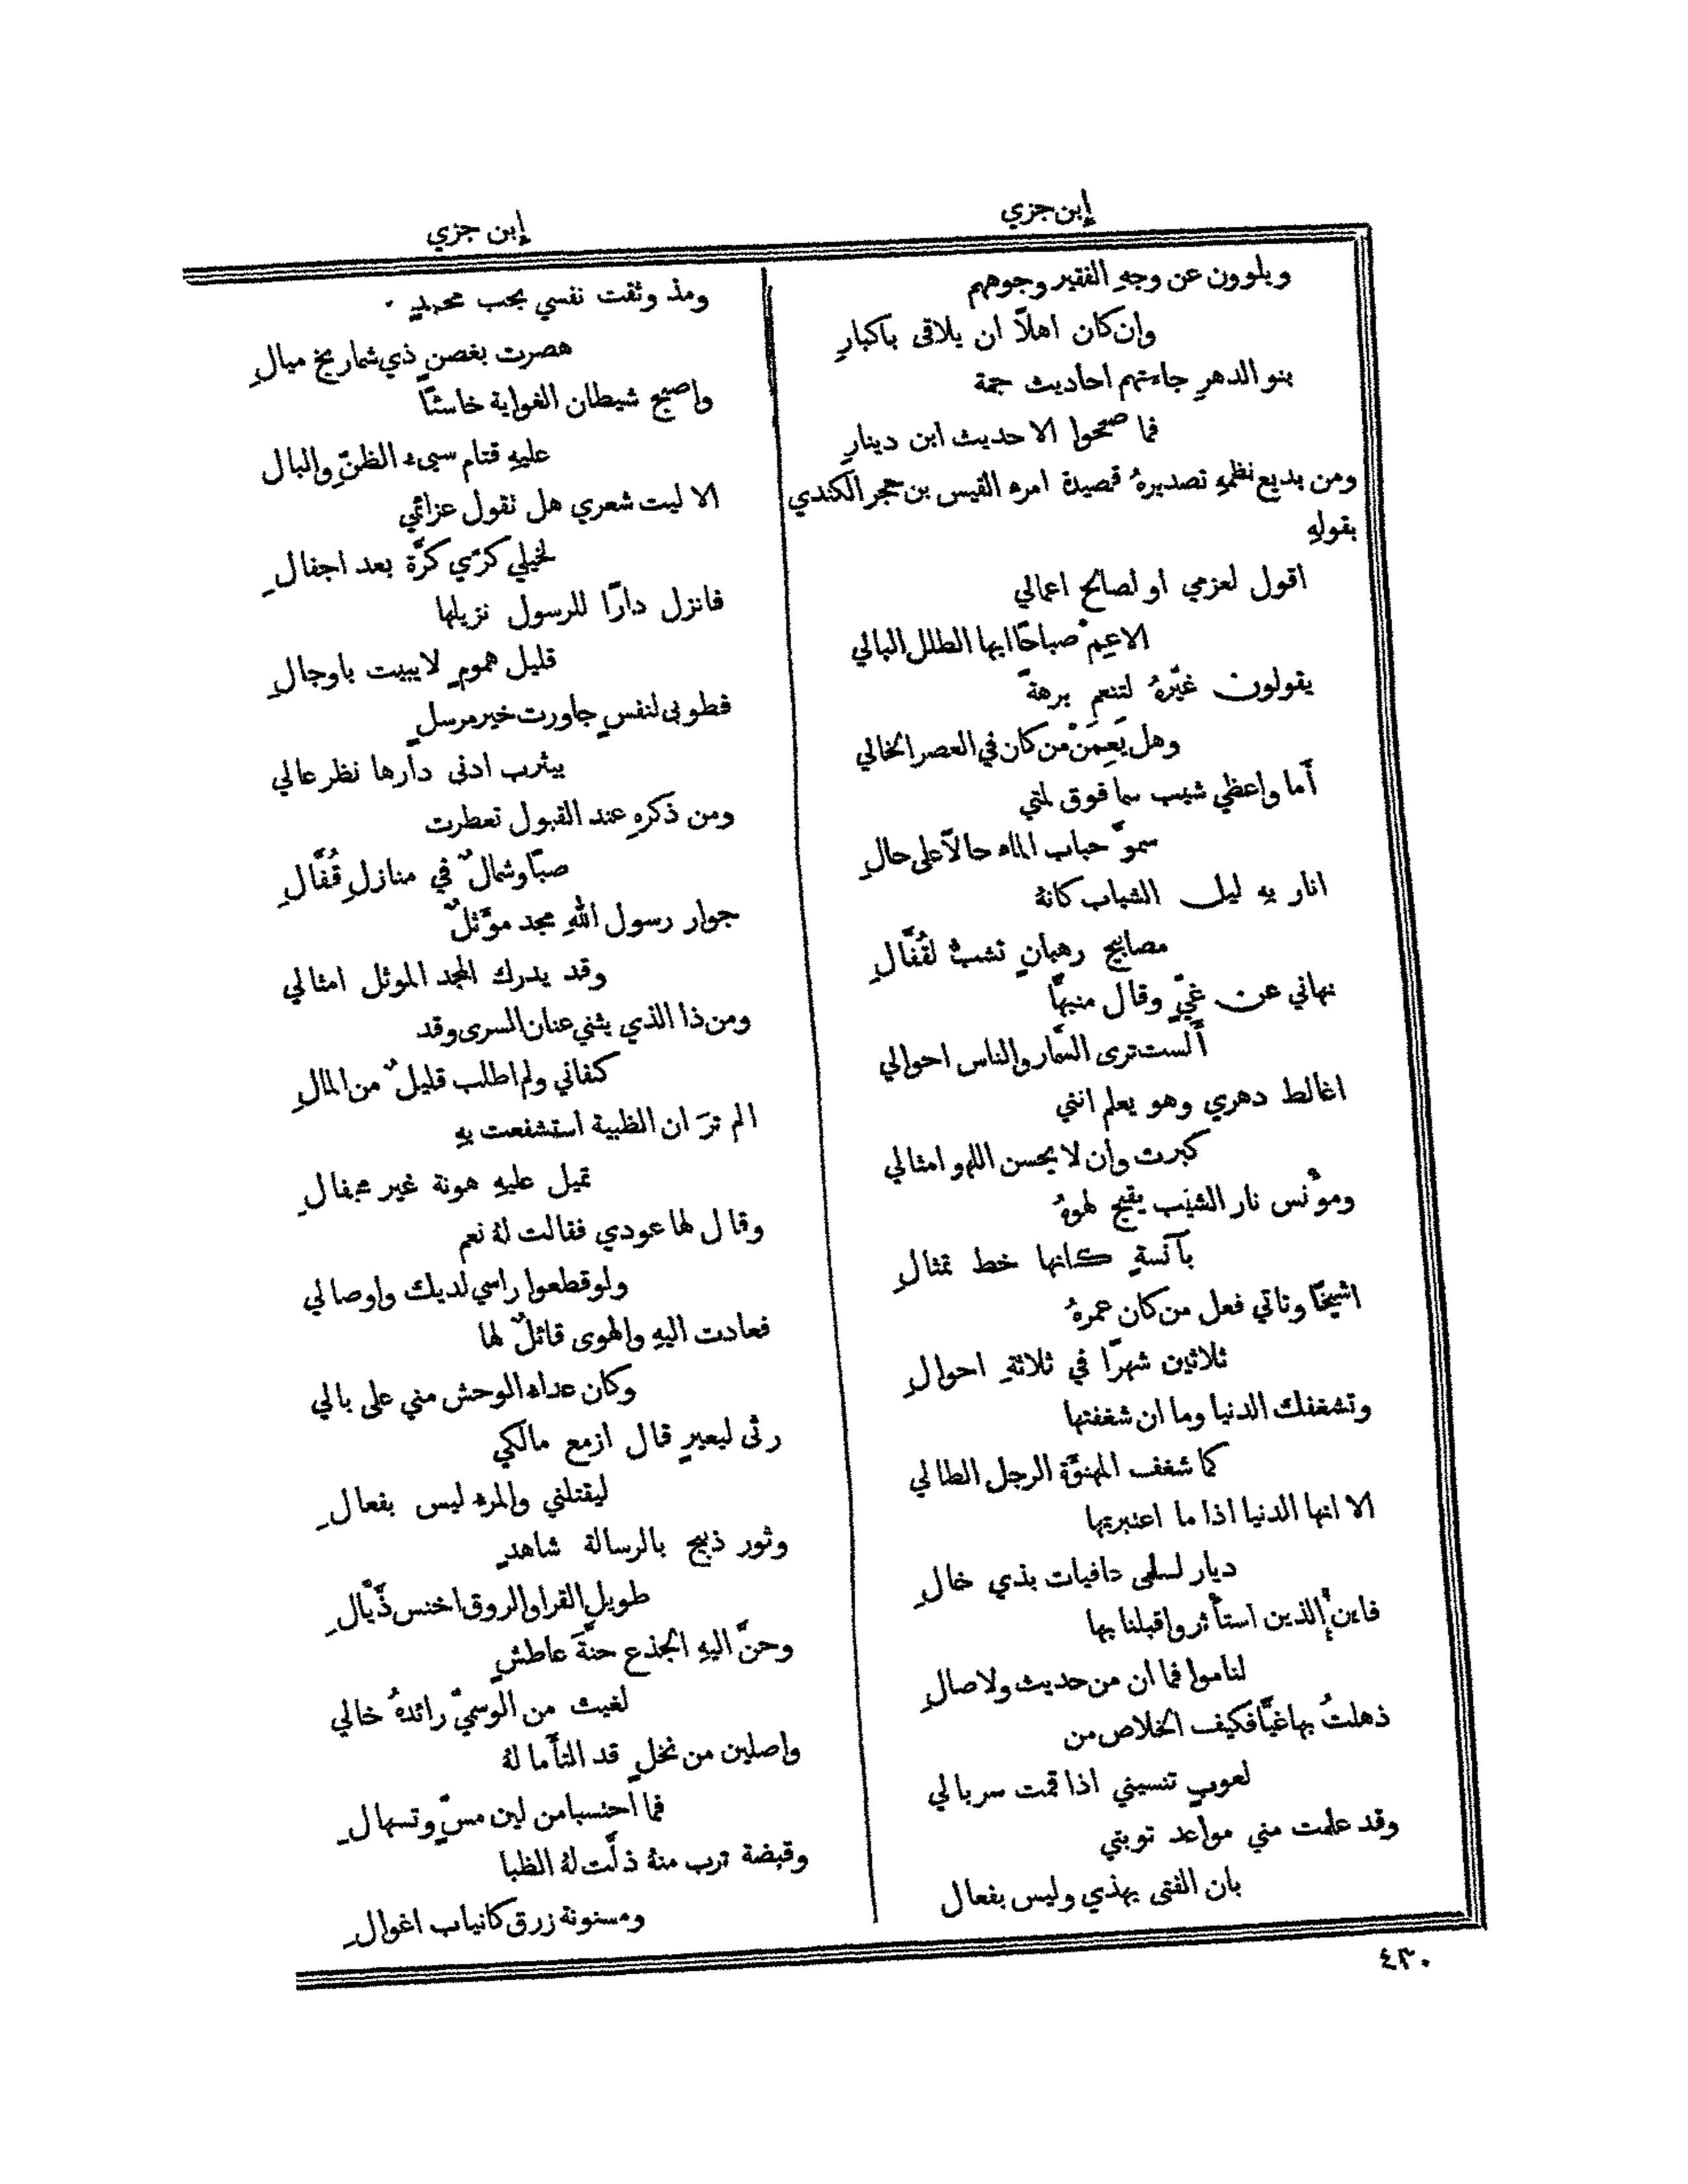 إبن جزي
إبن جزي
ويلوون عن وجهِ الفقير وجوههم
وإن كان اهلاً ان يلاقى باكبارِ
بنو الدهرِ جاءتهم احاديث جمة
فما صححوا الا حديث ابن دينارِ
ومن بديع نظمهِ تصديرهُ قصيدة امرء القيس بن حجر الكندي
بقولهِ
اقول لعزمي او لصالح اعمالي
الا عِمْ صباحًا ايها الطلل البالي
يقولون غيّرهُ لتنعم برهةً
وهل يَعِمَنْ من كان في العصر الخالي
أما واعظي شيب سما فوق لمتي
سموَّ حباب الماء حالاً على حالِ
انار بهِ ليل الشباب كانهُ
مصابيح رهبانٍ تشبُّ لقُفَّالِ
نهاني عن غيٍّ وقال منبهًا
أَلست ترى السمَّار والناس احوالي
اغالط دهري وهو يعلم انني
كبرت وان لا يحسن اللهو امثالي
ومؤنس نار الشيب يقبح لهوهُ
بآنسةٍ كانها خط تمثالِ
اشيخًا وتاتي فعل من كان عمرهُ
ثلاثين شهرًا في ثلاثةِ احوالِ
وتشغفك الدنيا وما ان شغفتها
كما شغف المهنوَّة الرجل الطالي
الا انها الدنيا اذا ما اعتبرتها
ديار لسلمى دافيات بذي خالِ
فاين الذين استأثروا قبلنا بها
لناموا فما ان من حديث ولا صالِ
ذهلتُ بها غيًّا فكيف الخلاص من
لعوبٍ تنسيني اذا قمت سربالي
وقد علمت مني مواعد توبتي
بان الفتى يهذي وليس بفعال
ومذ وثقت نفسي بحب محمدٍ
هصرت بغصنٍ ذي شماريخ ميالِ
واصبح شيطان الغواية خاسئًا
عليهِ قتام سيء الظنِّ والبال
الا ليت شعري هل تقول عزائي
لخيلي كرّي كرَّة بعد اجفالِ
فانزل دارًا للرسول نزيلها
قليل همومٍ لا يبيت باوجالِ
فطوبى لنفسٍ جاورت خير مرسلٍ
بيثرب ادنى دارها نظر عالي
ومن ذكرهِ عند القبول تعطرت
صبًا وشمالٌ في منازلِ قُفَّالِ
جوار رسول اللهِ مجد موَّثلٌ
وقد يدرك المجد الموثل امثالي
ومن ذا الذي يثني عنان السرى وقد
كفاني ولم اطلب قليلٌ من المالِ
الم ترَ ان الظبية استشفعت بهِ
تميل عليهِ هونة غير مجفالِ
وقال لها عودي فقالت لهُ نعم
ولو قطعوا راسي لديك واوصالي
فعادت اليهِ والهوى قائلٌ لها
وكان عداء الوحش مني على بالي
رثى لبعيرٍ قال ازمع مالكي
ليقتلني والمرء ليس بفعالِ
وثور ذبيح بالرسالة شاهدٍ
طويلِ القرا والروق اخنس ذَيَّالِ
وحنَّ اليهِ الجذع حنَّةَ عاطشٍ
لغيث من الوسميِّ رائدهُ خالي
واصلين من نخلٍ قد التأَما لهُ
فما احتسبا من لين مسٍّ وتسهالِ
وقبضة ترب منهُ ذلَّت لهُ الظبا
ومسنونة زرق كانياب اغوالِ
٤٣٠